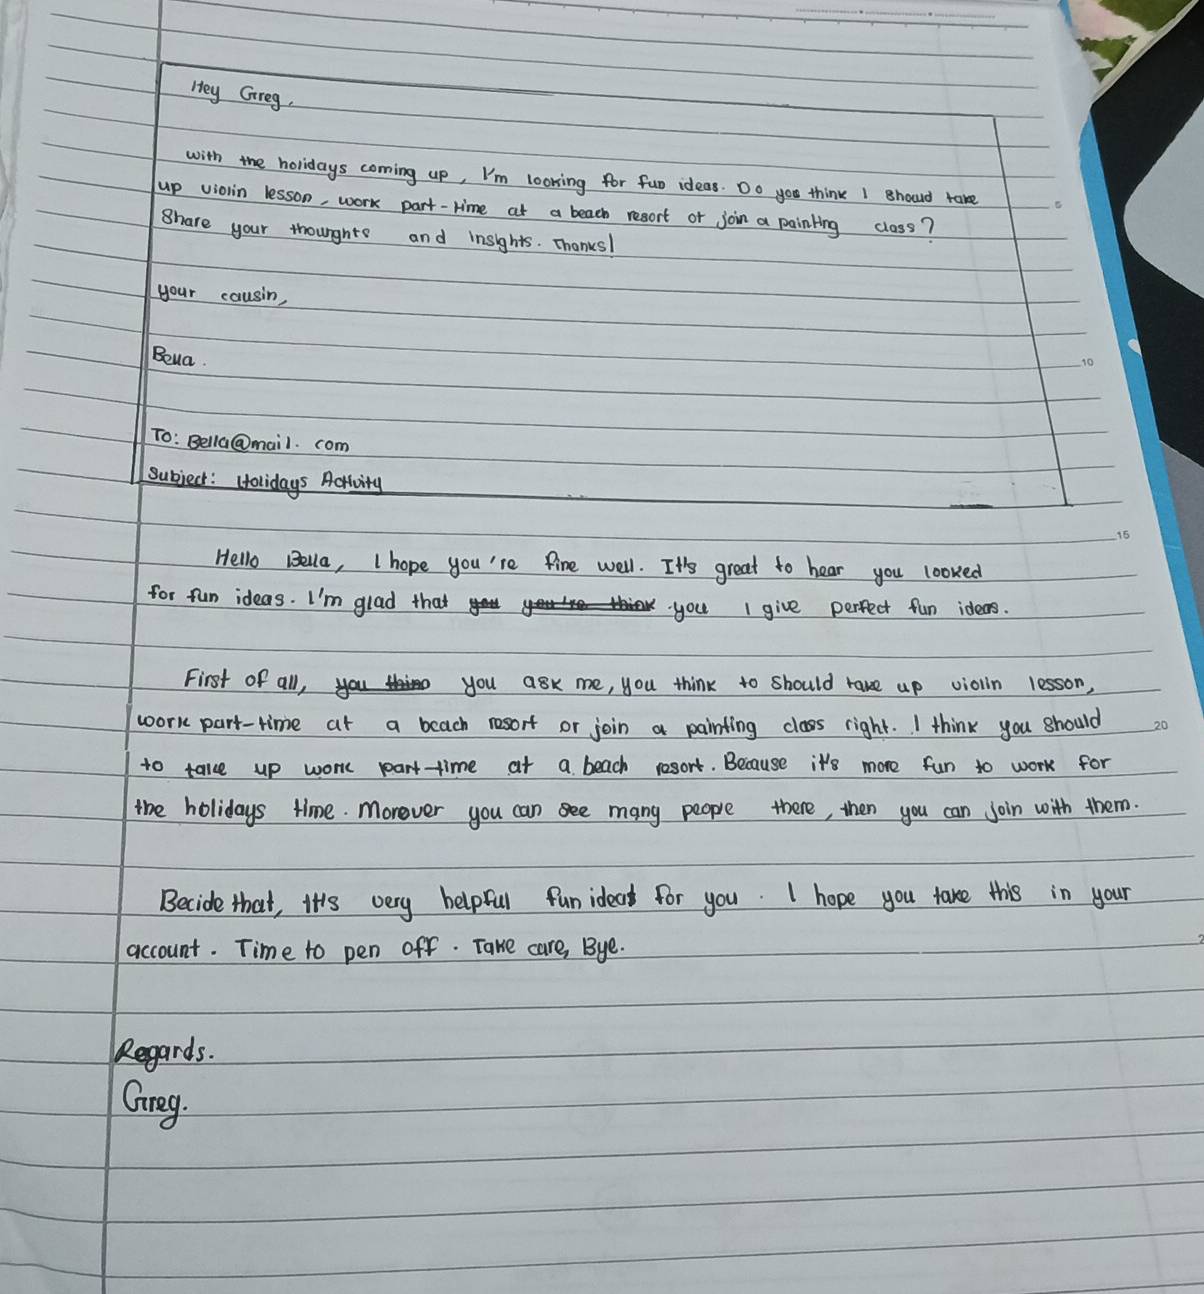 Hey Greg,
With the holidays coming up, I'm looking for fun ideas. Do you think I should take
up violin lesson, work part-time at a beach resort or join a painting class?
Share your thounghts and insights. Thanks!
your causin,
Bella.
To: Bella@mail.com
Subject: Holidays Activity
Hello Bella, I hope you're fine well. It's great to hear you looked
for fun ideas. I'm glad that you I give perfect fun ideas.
First of all, you ask me, you think to should take up violin lesson,
work part-time at a beach resort or join a painting class right. I think you should
to take up work part-time at a beach resort. Because it's more fun to work for
the holidays time. Morover you can see many people there, then you can join with them.
Becide that, it's very helpful fun ideas for you. I hope you take this in your
account. Time to pen off. Take care, Bye.
Regards.
Greg.
5
10
15
20